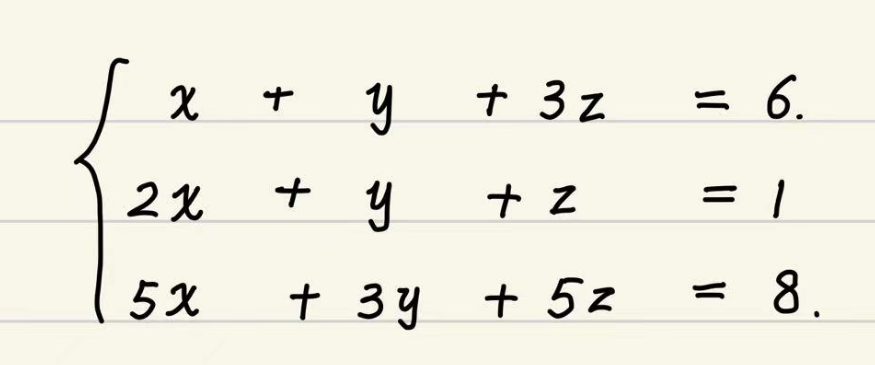 x + y + 3z = 6.
2x + y + z = 1
5x + 3y + 5z = 8.